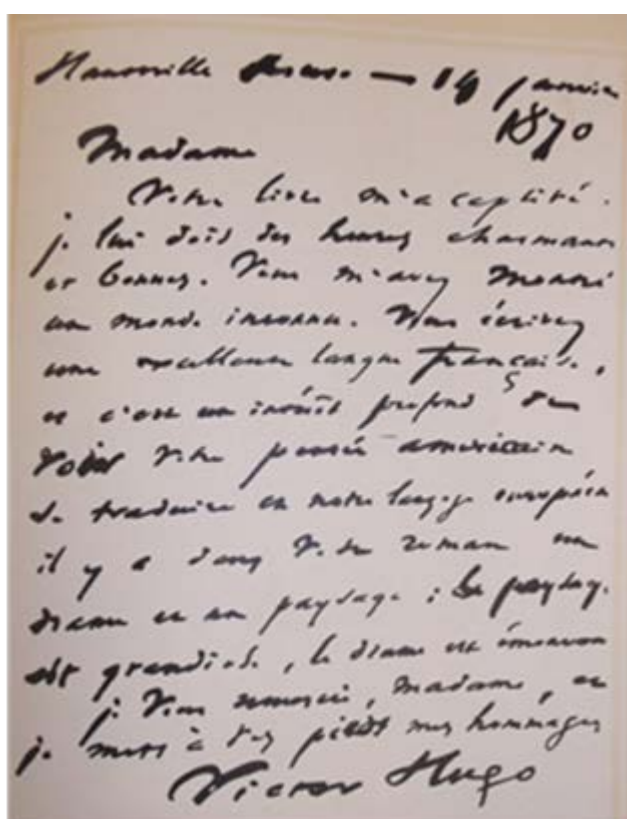 Hauteville house — 14 janvier
1870
Madame
Votre livre m'a captivé.
je lui dois des heures charmantes
et bonnes. Vous m'avez montré
un monde inconnu. Vous écrivez
une excellente langue française,
et c'est un intérêt profond de
voir votre pensée américaine
se traduire en notre langage européen
il y a dans votre roman un
drame et un paysage ; le paysage
est grandiose, le drame est émouvant
je vous remercie, madame, et
je mets à vos pieds mes hommages
Victor Hugo